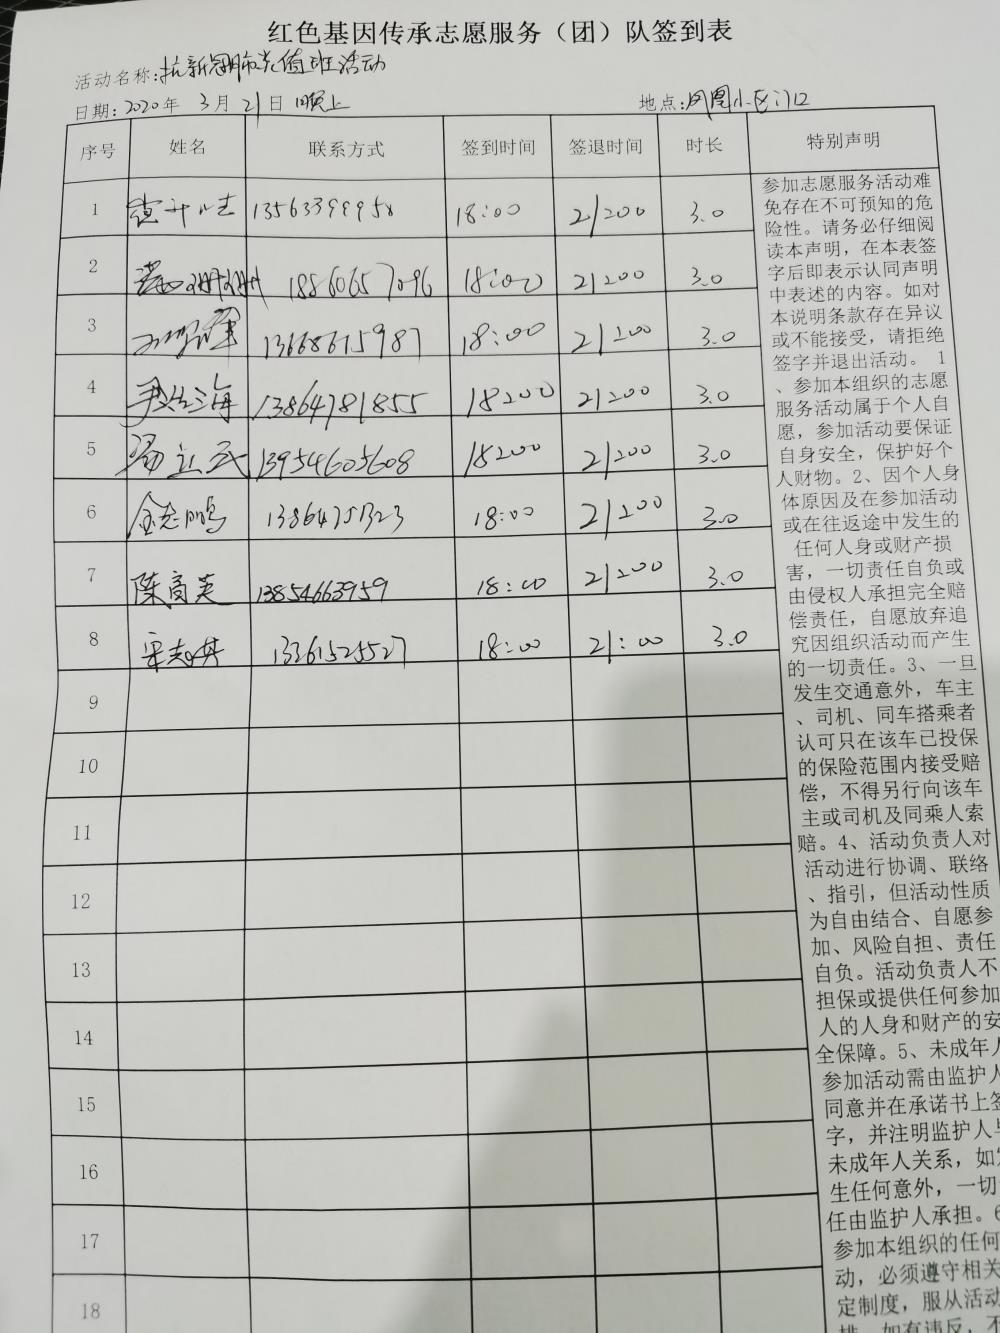 红色基因传承志愿服务（团）队签到表
活动名称:抗新冠肺炎值班活动
日期:2020年 3月21日 晚上 地点:凤凰小区门口
序号 姓名 联系方式 签到时间 签退时间 时长 特别声明
1 18:00 21:00 3.0
2 18860657096 18:00 21:00 3.0
3 13668615987 18:00 21:00 3.0
4 13864781855 18:00 21:00 3.0
5 13954605608 18:00 21:00 3.0
6 金志鹏 18:00 21:00 3.0
7 陈育英 13854663959 18:00 21:00 3.0
8 宋志冉 13361525527 18:00 21:00 3.0
9
10
11
12
13
14
15
16
17
18
参加志愿服务活动难
免存在不可预知的危
险性。请务必仔细阅
读本声明，在本表签
字后即表示认同声明
中表述的内容。如对
本说明条款存在异议
或不能接受，请拒绝
签字并退出活动。 1
、参加本组织的志愿
服务活动属于个人自
愿，参加活动要保证
自身安全，保护好个
人财物。2、因个人身
体原因及在参加活动
或在往返途中发生的
任何人身或财产损
害，一切责任自负或
由侵权人承担完全赔
偿责任，自愿放弃追
究因组织活动而产生
的一切责任。3、一旦
发生交通意外，车主
、司机、同车搭乘者
认可只在该车已投保
的保险范围内接受赔
偿，不得另行向该车
主或司机及同乘人索
赔。4、活动负责人对
活动进行协调、联络
、指引，但活动性质
为自由结合、自愿参
加、风险自担、责任
自负。活动负责人不
担保或提供任何参加
人的人身和财产的安
全保障。5、未成年人
参加活动需由监护人
同意并在承诺书上签
字，并注明监护人与
未成年人关系，如发
生任何意外，一切
任由监护人承担。6
参加本组织的任何
动，必须遵守相关
定制度，服从活动
排，如有违反，不